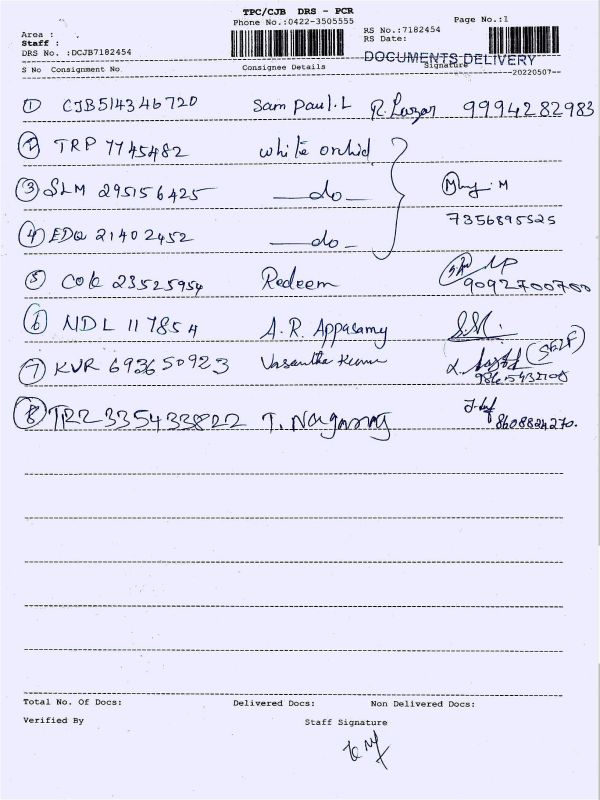 TPC/CJB DRS - PCR
Phone No.:0422-3505555 Page No.:1
Area : RS No.:7182454
Staff : RS Date:
DRS No. :DCJB7182454 DOCUMENTS DELIVERY
S No Consignment No Consignee Details Signature
--20220507--
1 CJB514346720 Sam Paul.L R. Lazar 9994282983
2 TRP 7745482 white orchid
3 SLM 295156425 —do— M
7356895525
4 EDQ 21402452 —do—
5 Cok 23525954 Redeem
9092700700
6 MDL 117854 A.R. Appasamy S.M.
7 KVR 693650923 Vasantha Kumar (SELF)
8 TRZ 335433822 T. Nagaraj
8608824270.
Total No. Of Docs: Delivered Docs: Non Delivered Docs:
Verified By Staff Signature